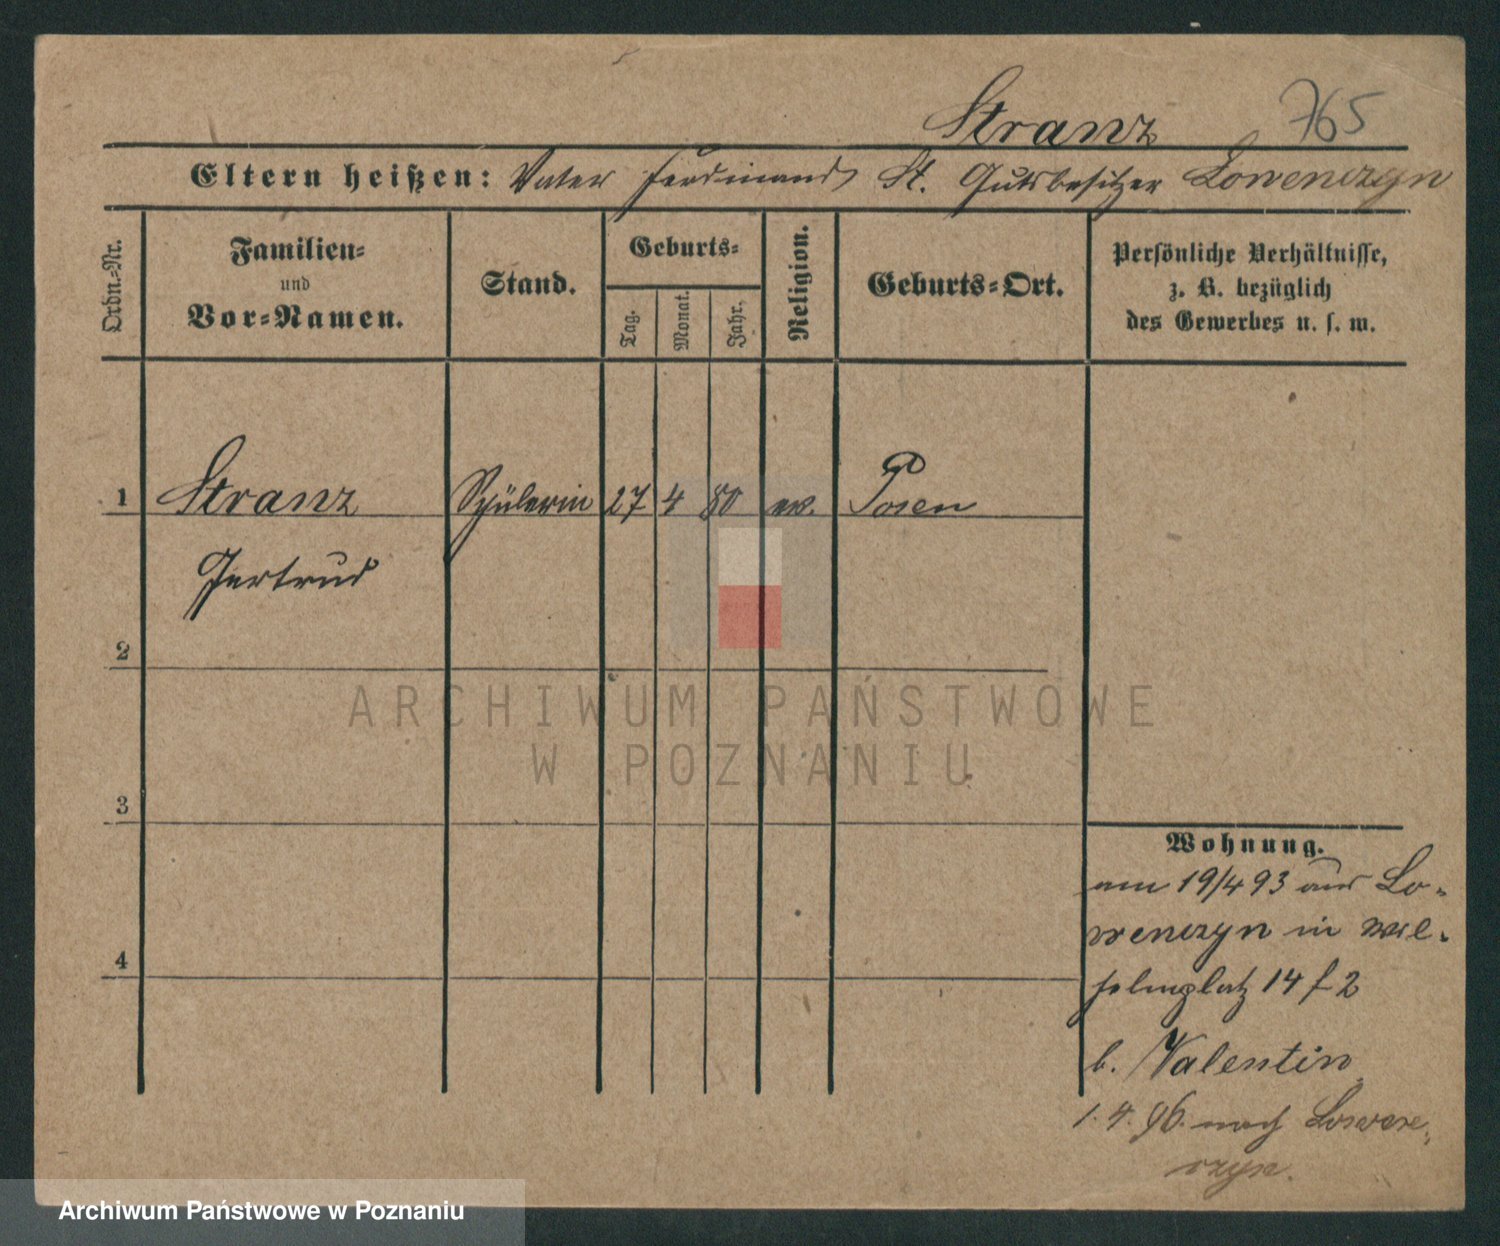 Stranz 765
Eltern heißen: Vater Ferdinand St. Gutsbesitzer Lowenczyn
Ordn.-Nr.
Familien-
und
Vor-Namen.
Stand.
Geburts-
Tag.
Monat.
Jahr.
Religion.
Geburts-Ort.
Persönliche Verhältnisse,
z. B. bezüglich
des Gewerbes u. s. w.
1 Stranz Schülerin 27 4 80 ev. Posen
Gertrud
2
3
4
Wohnung.
am 19/4 93 aus Lo-
wenczyn in Wil-
helmplatz 14 2
b. Valentin
1. 4. 96. nach Lowen-
czyn.
ARCHIWUM PAŃSTWOWE
W POZNANIU
Archiwum Państwowe w Poznaniu